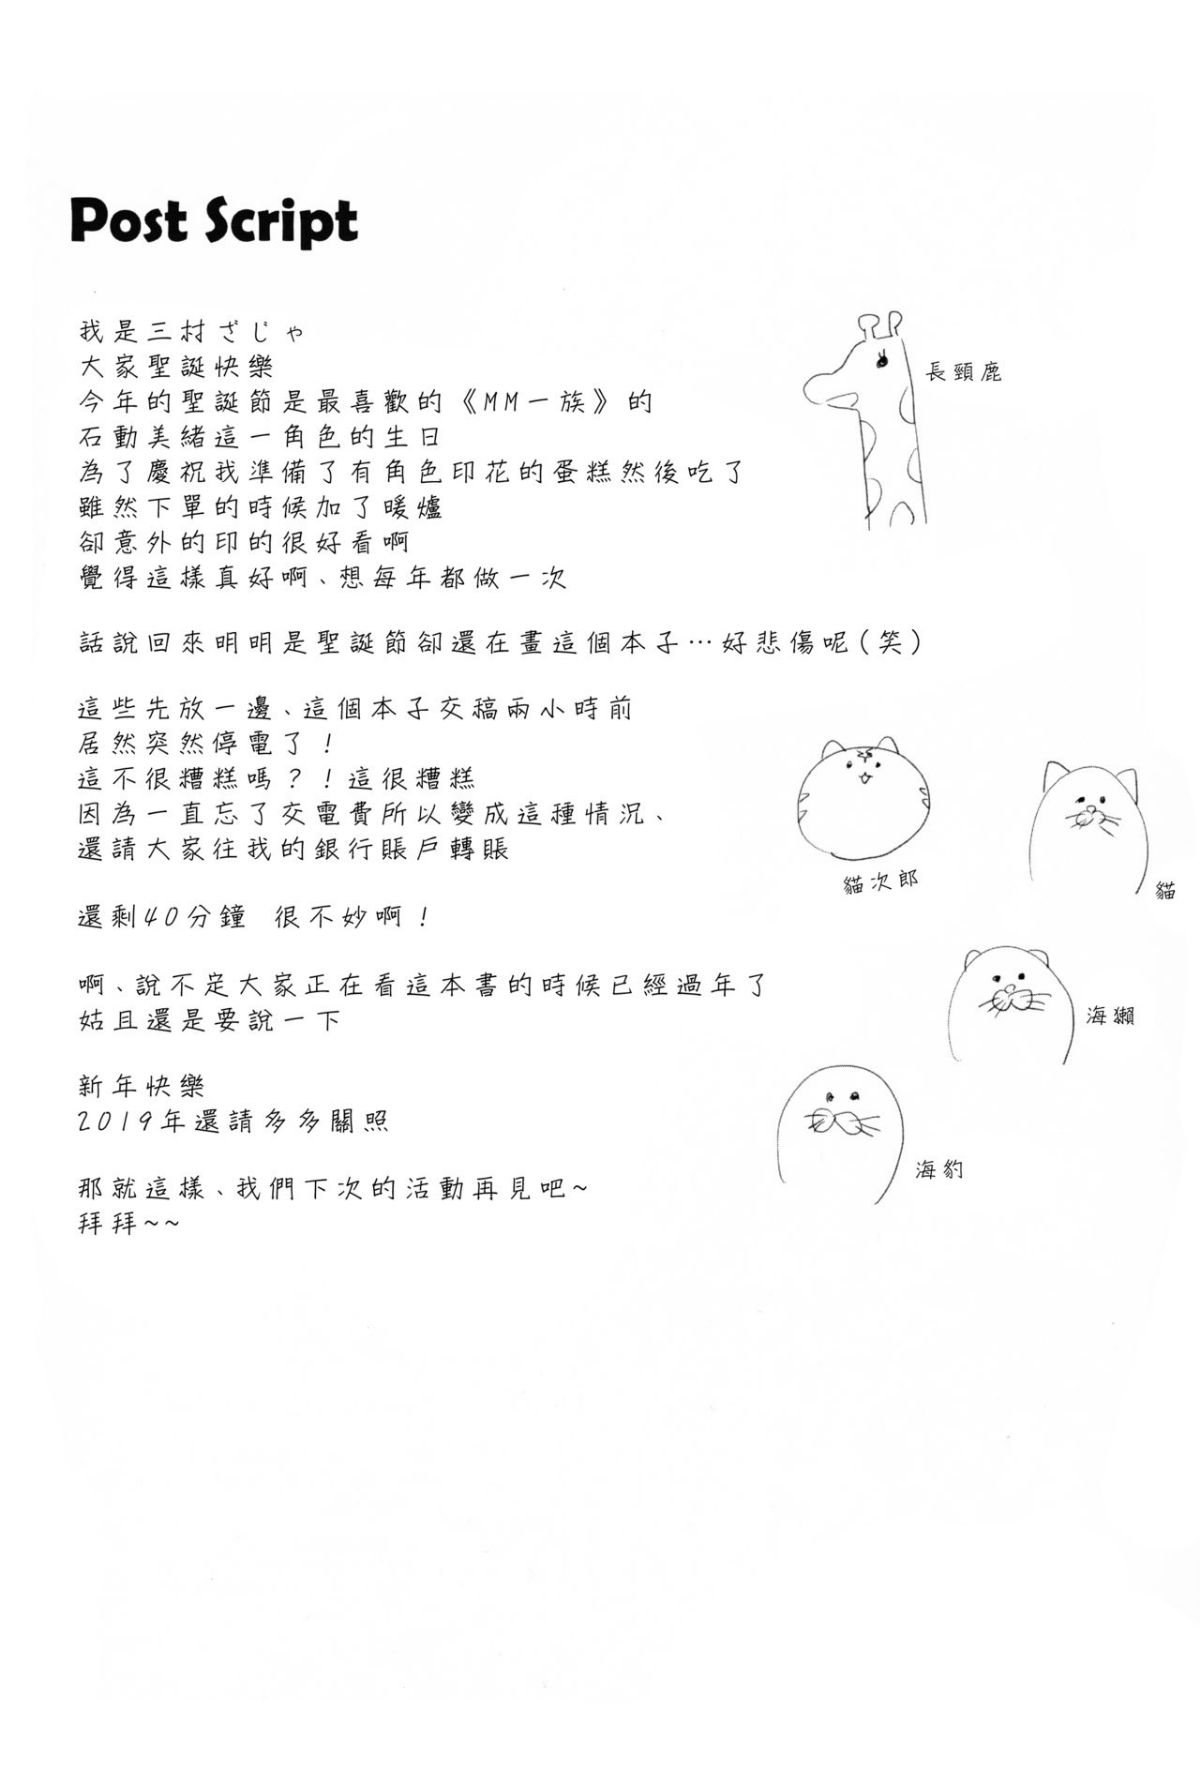 Post Script
我是三村ざじゃ
大家聖誕快樂
今年的聖誕節是最喜歡的《MM一族》的
石動美緒這一角色的生日
為了慶祝我準備了有角色印花的蛋糕然後吃了
雖然下單的時候加了暖爐
卻意外的印的很好看啊
覺得這樣真好啊、想每年都做一次
話說回來明明是聖誕節卻還在畫這個本子…好悲傷呢(笑)
這些先放一邊、這個本子交稿兩小時前
居然突然停電了！
這不很糟糕嗎？！這很糟糕
因為一直忘了交電費所以變成這種情況、
還請大家往我的銀行賬戶轉賬
還剩40分鐘 很不妙啊！
啊、說不定大家正在看這本書的時候已經過年了
姑且還是要說一下
新年快樂
2019年還請多多關照
那就這樣、我們下次的活動再見吧~
拜拜~~
長頸鹿
貓次郎
貓
海獺
海豹